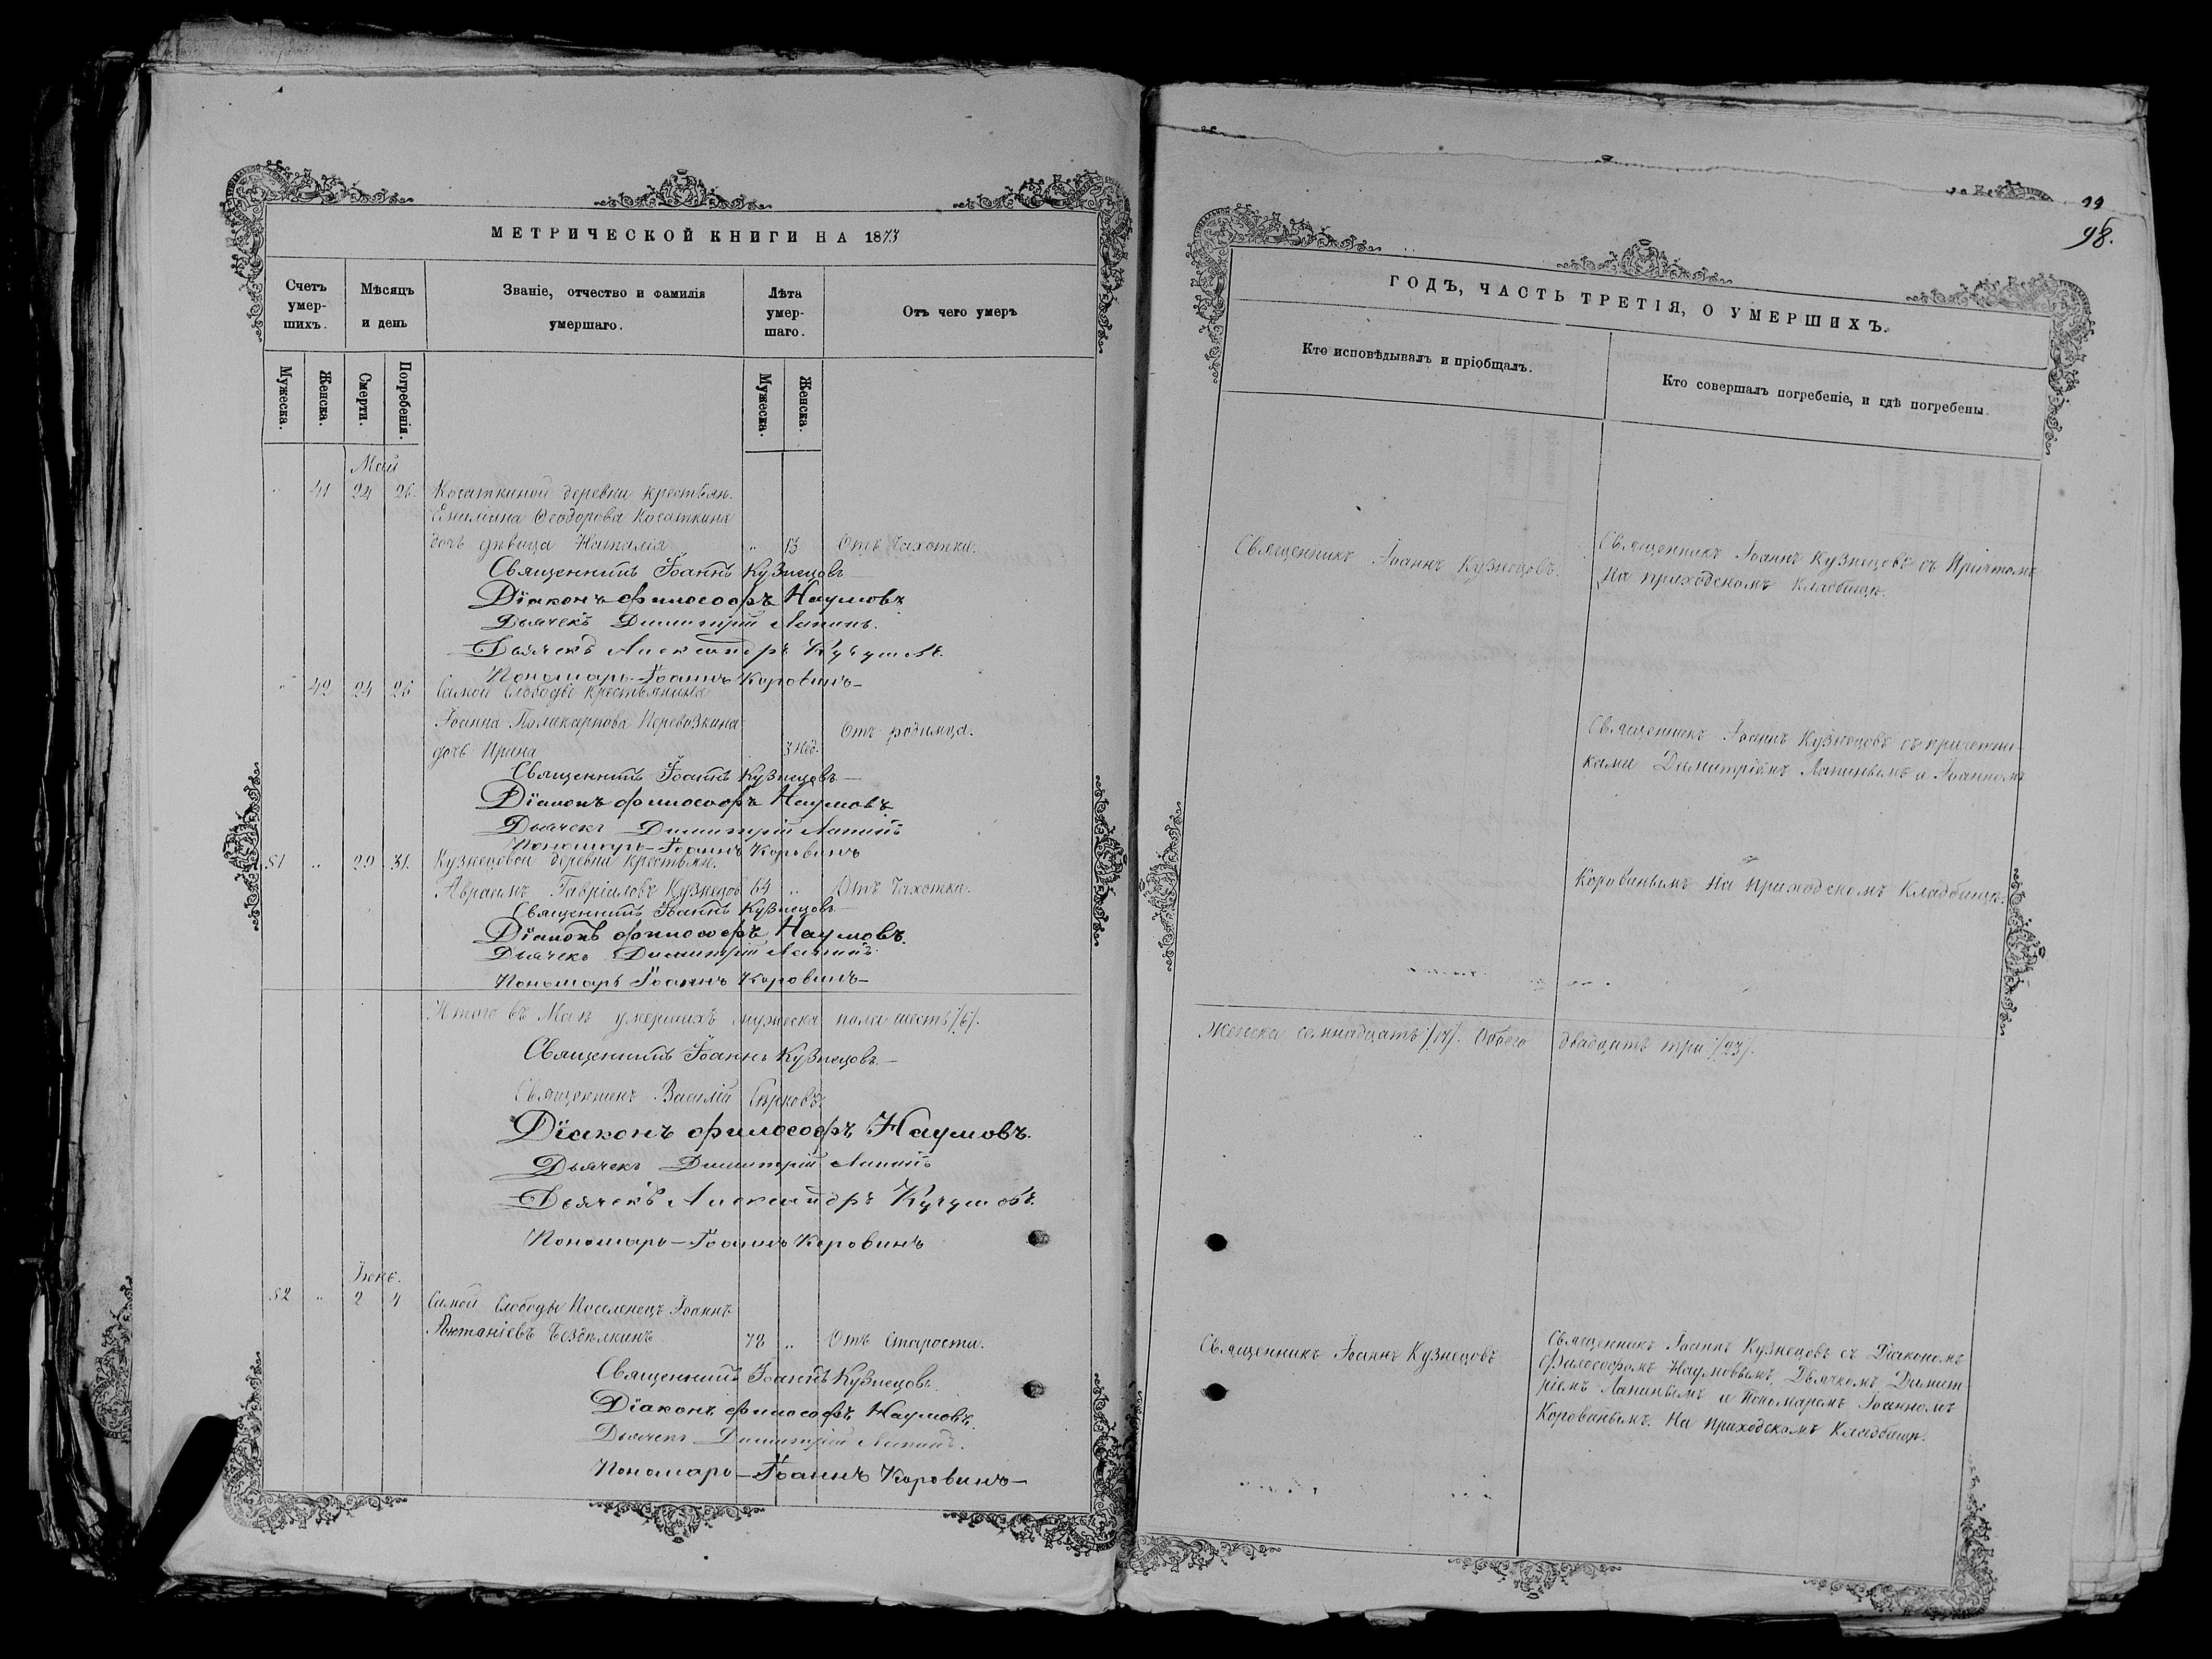 МЕТРИЧЕСКОЙ КНИГИ НА 1873
Счетъ умер-шихъ.
Мѣсяцъ и день
Званіе, отчество и фамилія умершаго.
Лѣта умер-шаго.
Отъ чего умеръ
Мужеска.
Женска.
Смерти.
Погребенія.
Мужеска.
Женска.
Май
" 41 24 26. Косаткиной деревни крестьян.
Емиліана Ѳеодорова Косаткина
дочь дѣвица Наталія " 13 Отъ Чахотки.
Священникъ Іоаннъ Кузнецовъ
Діаконъ Философъ Наумовъ
Дьячекъ Димитрій Лапинъ.
Дьячекъ Александръ Кучумовъ.
Пономарь Іоаннъ Коровинъ
" 42 24 26 Самой Слободы крестьянина
Іоанна Поликарпова Перевозкина
дочь Ирина 3 нед. Отъ родимца.
Священникъ Іоаннъ Кузнецовъ
Діаконъ Философъ Наумовъ
Дьячекъ Димитрій Лапинъ
Пономарь Іоаннъ Коровинъ
51 " 29 31. Кузнецовой деревни крестьян.
Авраамъ Гавріиловъ Кузнецов 64 " Отъ Чахотки.
Священникъ Іоаннъ Кузнецовъ
Діаконъ Философъ Наумовъ.
Дьячекъ Димитрій Лапинъ
Пономарь Іоаннъ Коровинъ
Итого въ Маѣ умершихъ мужеска пола шесть /6/.
Священникъ Іоаннъ Кузнецовъ
Священникъ Василій
Діаконъ Философъ Наумовъ.
Дьячекъ Димитрій Лапинъ
Дьячекъ Александръ Кучумовъ.
Пономарь Іоаннъ Коровинъ
Іюнь.
52 " 2 4 Самой Слободы Поселенецъ Іоаннъ
78 " Отъ Старости.
Священникъ Іоаннъ Кузнецовъ
Діаконъ Философъ Наумовъ.
Дьячекъ Димитрій Лапинъ.
Пономарь Іоаннъ Коровинъ
98.
ГОДЪ, ЧАСТЬ ТРЕТІЯ, О УМЕРШИХЪ.
Кто исповѣдывалъ и пріобщалъ.
Кто совершалъ погребеніе, и гдѣ погребены.
Священникъ Іоаннъ Кузнецовъ.
Священникъ Іоаннъ Кузнецовъ съ Причтомъ
На приходскомъ Кладбищѣ.
Священникъ Іоаннъ Кузнецовъ съ причетни-
ками Димитріемъ Лапинымъ и Іоанномъ
Коровинымъ На Приходскомъ Кладбищѣ.
Женска семнадцать /17/. Обоего двадцать три /23/.
Священникъ Іоаннъ Кузнецовъ
Священникъ Іоаннъ Кузнецовъ съ Діакономъ
Философомъ Наумовымъ, Дьячкомъ Димит-
ріемъ Лапинымъ и Пономаремъ Іоанномъ
Коровинымъ. На Приходскомъ Кладбищѣ.